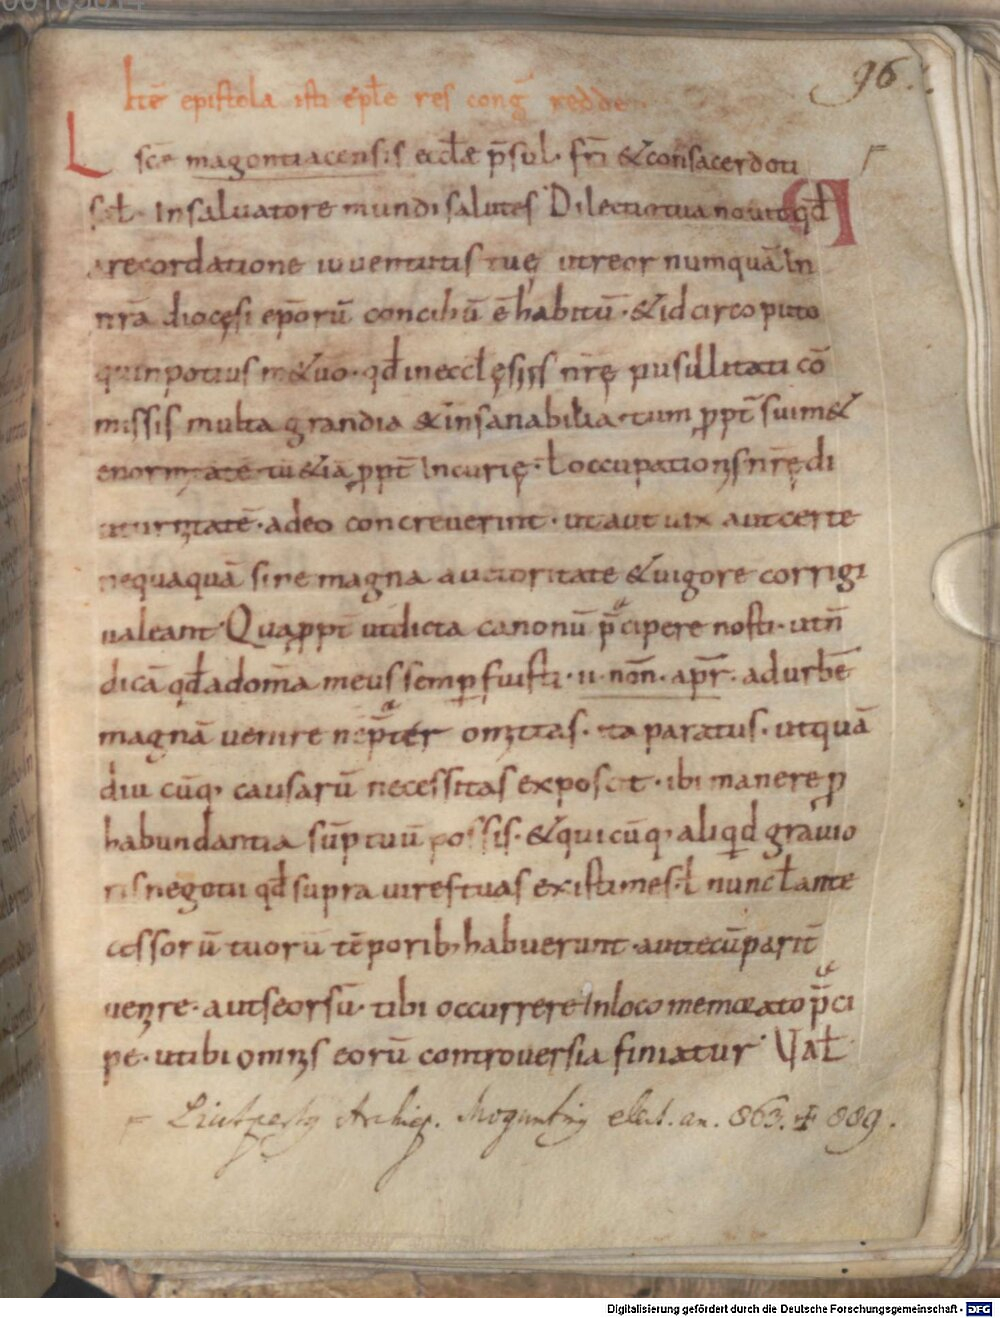 00105014
96.
Itē epistola isti epłe res cong̅ redde
L scę magontiacensis ecctæ p̄sul. fr̄i &consacerdoti
sał. Insaluatore mundi salutes Dilectiotua nouit qđ
a recordatione iuuentutis tuę utreor numquā In
nr̄a diocęsi ep̄orū conciliū ē habitū. &idcirco puto
qđ Ineccłęsiis nr̄ę pusillitati cō
missis multa grandia &insanabilia. tum ꝓpt̄ sui im&
enormitatē tū &iā ꝓpt̄ Incurię. ł occupationis nr̄ę di
uturnitatē. adeo concreuerint. utaut uix autcerte
nequaquā sine magna auctoritate &uigore corrigi
ualeant. Quaꝓpt̄ utdicta canonū p̄cipere nosti. utn̄
dicā qđadom̄a meus semp fuisti. ii. non̄. apr̄. adurbē
magnā uenire n p̄ter omittas. ita paratus. utquā
diu cūq; causarū necessitas exposcit. ibi manere p
habundantia sūptuū possis. &quicūq; aliqđ grauio
ris negotii qđ supra uires tuas existimes. ł nunc ł ante
cessorū tuorū tēporib; habuerunt. aut tecū parit̄
uenire. autseorsū. tibi occurrere Inloco memorato p̄ci
pe. utibi omnis eorū controuersia finiatur Vał
Liutpertus Archiep. Moguntinus elect. an. 863. ✝ 889.
Digitalisierung gefördert durch die Deutsche Forschungsgemeinschaft - DFG